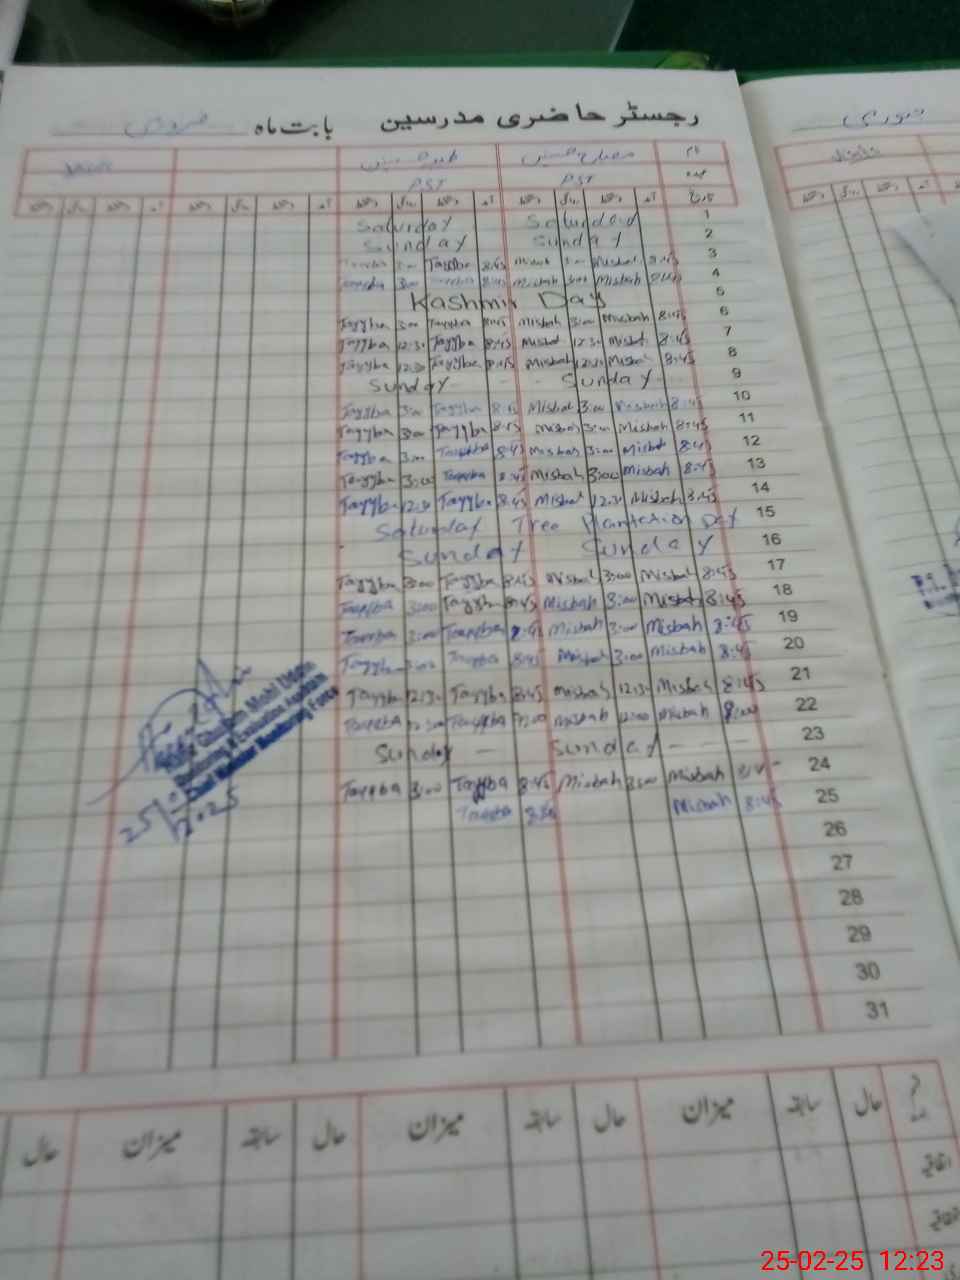 رجسٹر حاضری مدرسین بابت ماہ فروری
جنوری
نام مصباح حسین طیبہ حسین
عہدہ PST PST
تاریخ آمد دستخط روانگی دستخط آمد دستخط روانگی دستخط آمد دستخط روانگی دستخط آمد دستخط روانگی دستخط
1 Saturday Saturday
2 Sunday Sunday
3 8:45 Misbah 3:00 Misbah 8:45 Tayyba 3:00
4 Misbah 3:00 Misbah 8:45 3:00
5 Kashmir Day
6 8:45 Misbah 3:00 Misbah 8:45 Tayyba 3:00 Tayyba
7 8:45 Misbah 12:30 Misbah 8:45 Tayyba 12:30 Tayyba
8 8:45 Misbah 12:30 Misbah 8:45 Tayyba 12:30 Tayyba
9 Sunday Sunday
10 8:45 Misbah 3:00 Misbah 8:45 Tayyba 3:00 Tayyba
11 8:45 Misbah 3:00 Misbah 8:45 Tayyba 3:00 Tayyba
12 8:45 Misbah 3:00 Misbah 8:45 Tayyba 3:00 Tayyba
13 8:45 Misbah 3:00 Misbah 8:45 Tayyba 3:00 Tayyba
14 8:45 Misbah 12:30 Misbah 8:45 Tayyba 12:30 Tayyba
15 Saturday Tree Plantation Day
16 Sunday Sunday
17 8:45 Misbah 3:00 Misbah 8:45 Tayyba 3:00 Tayyba
18 8:45 Misbah 3:00 Misbah 8:45 Tayyba 3:00 Tayyba
19 8:45 Misbah 3:00 Misbah 8:45 Tayyba 3:00 Tayyba
20 8:45 Misbah 3:00 Misbah 8:45 Tayyba 3:00 Tayyba
21 8:45 Misbah 12:30 Misbah 8:45 Tayyba 12:30 Tayyba
22 8:00 Misbah 12:00 Misbah Tayyba Tayyba
23 Sunday Sunday
24 Misbah 3:00 Misbah 8:45 Tayyba 3:00 Tayyba
25 8:45 Misbah Tayyba
26
27
28
29
30
31
Ghulam Mohi Uddin
Monitoring & Evaluation Assistant
Chief Minister Monitoring Force
25/2/2025
حال سابقہ میزان حال سابقہ میزان حال سابقہ میزان حال
اتفاقیہ
25-02-25 12:23